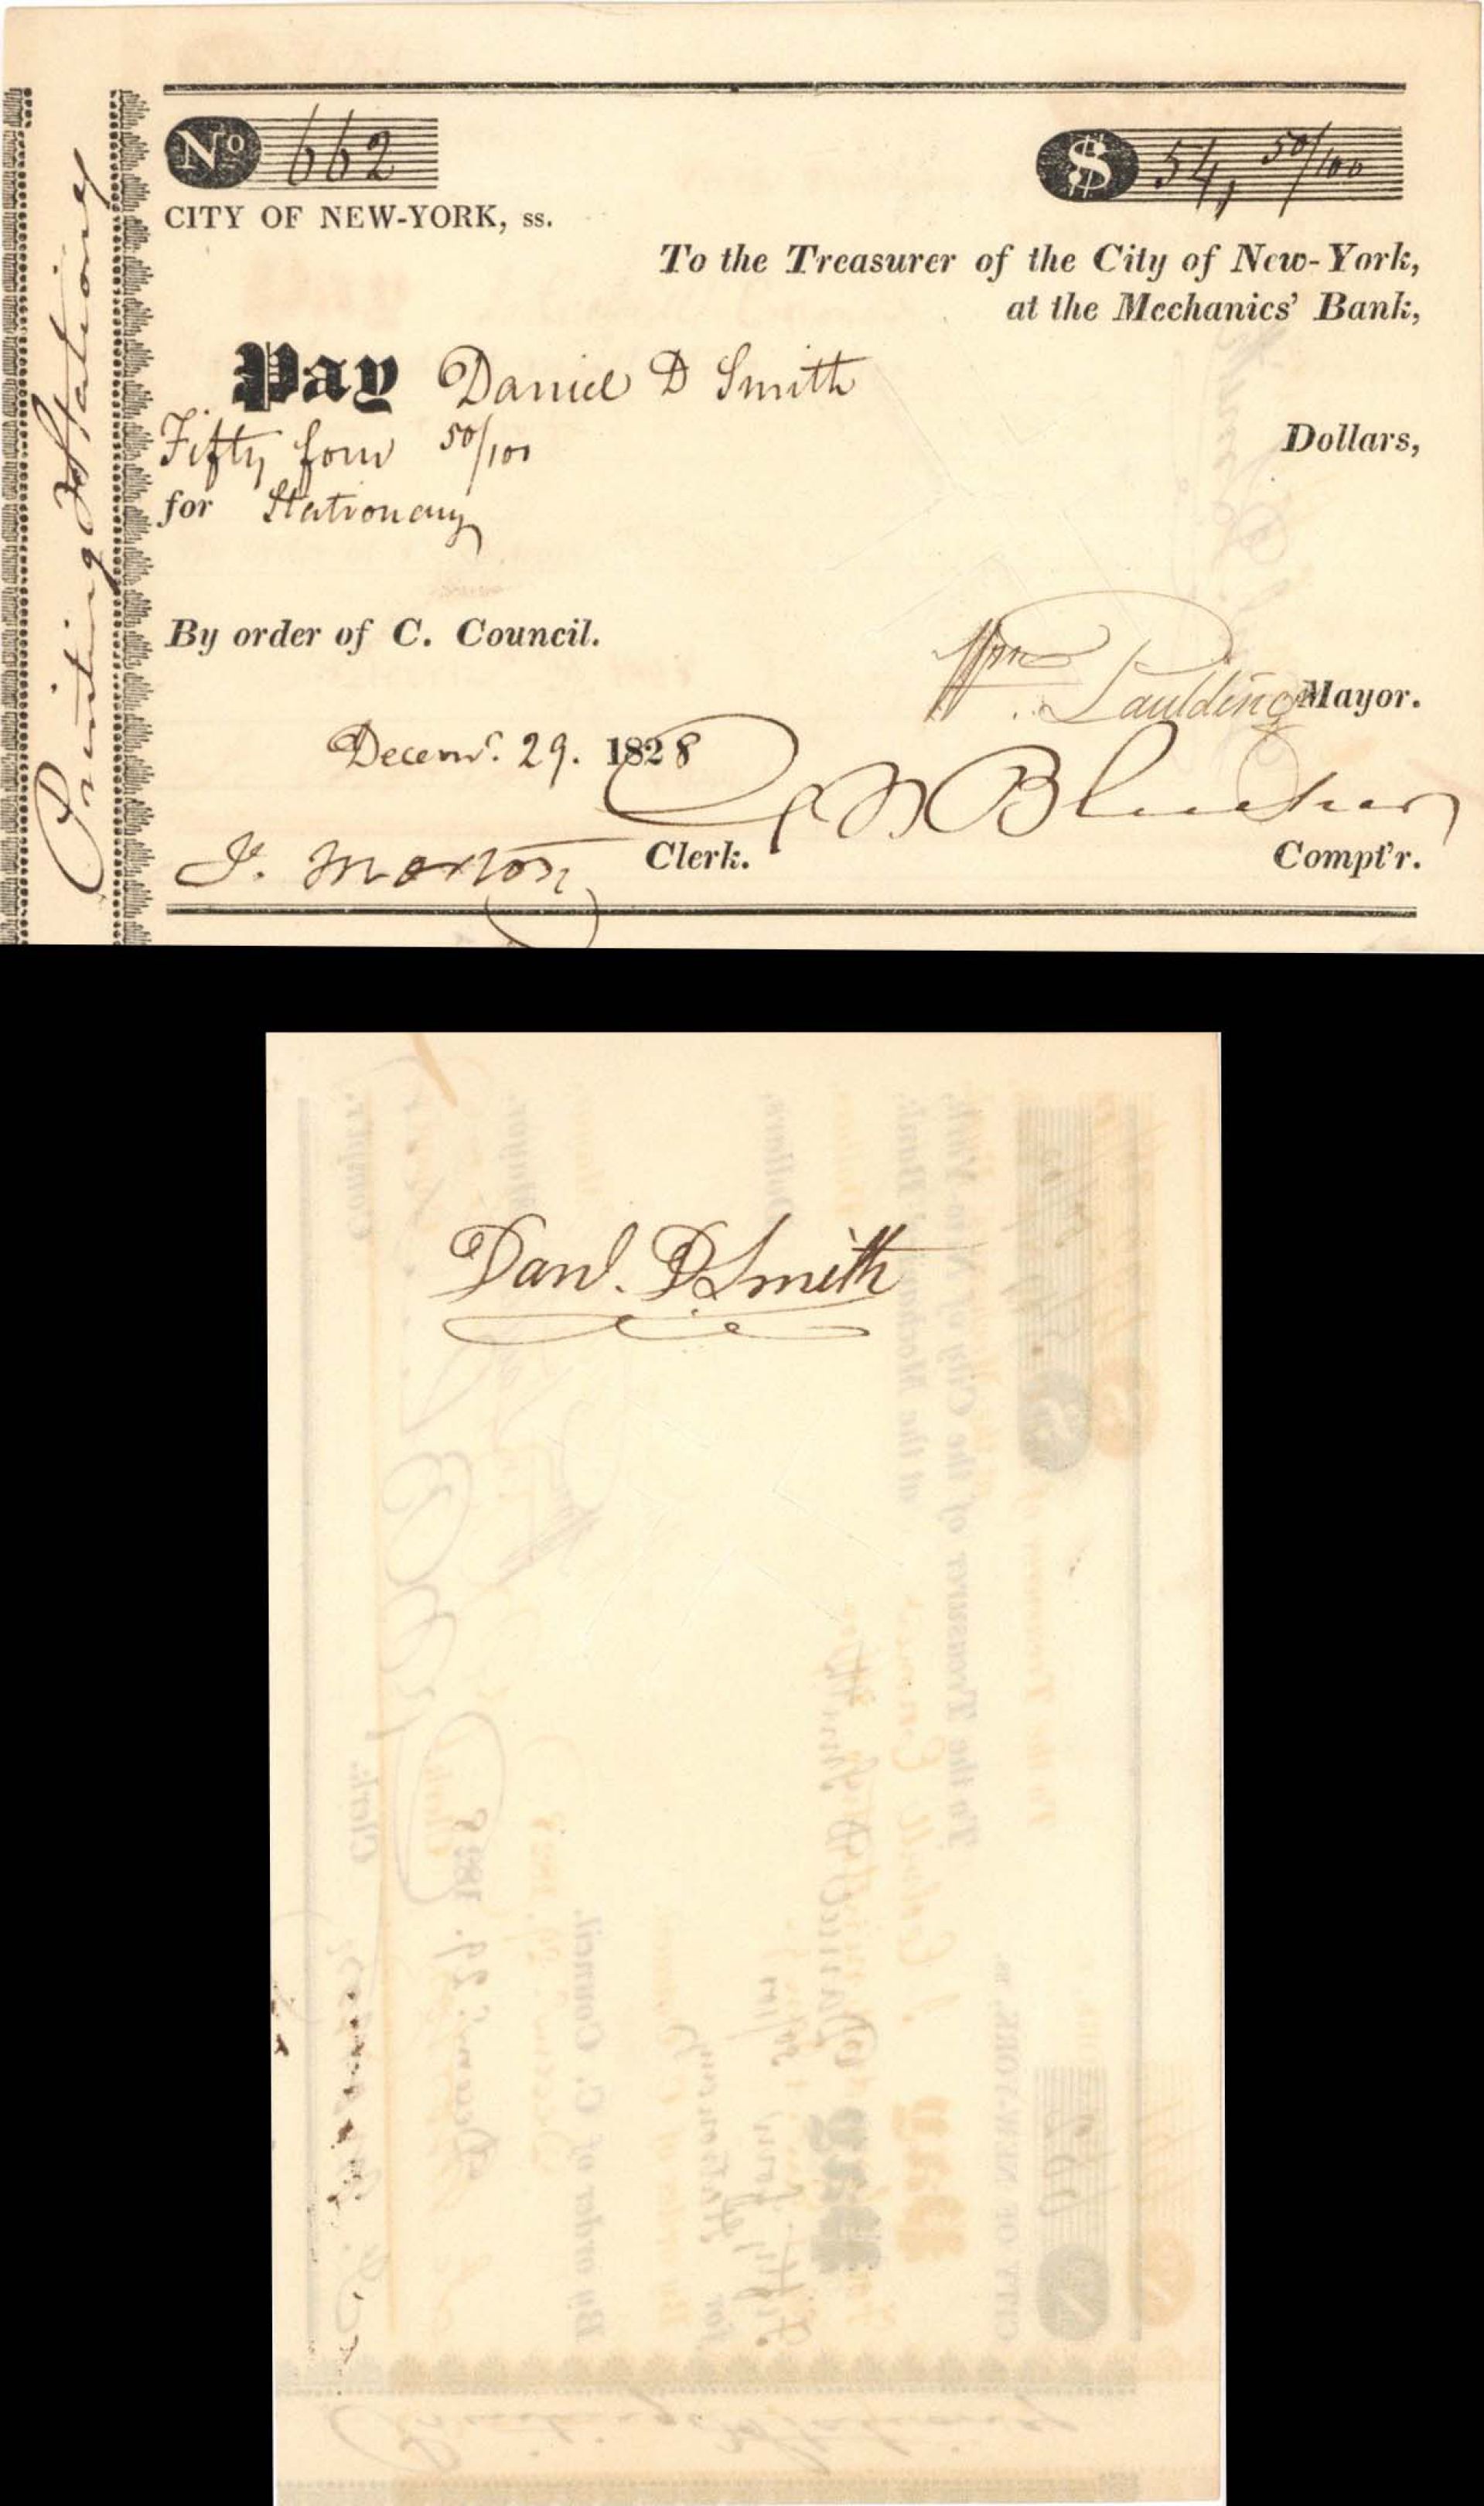 Printing & Stationery
No 662
$ 54, 50/100
CITY OF NEW-YORK, ss.
To the Treasurer of the City of New-York,
at the Mechanics' Bank,
Pay Daniel D Smith
Fifty four 50/100 Dollars,
for Stationery
By order of C. Council.
Wm Paulding Mayor.
Decemr. 29. 1828
J. Morton Clerk.
Compt'r.
Danl. D Smith